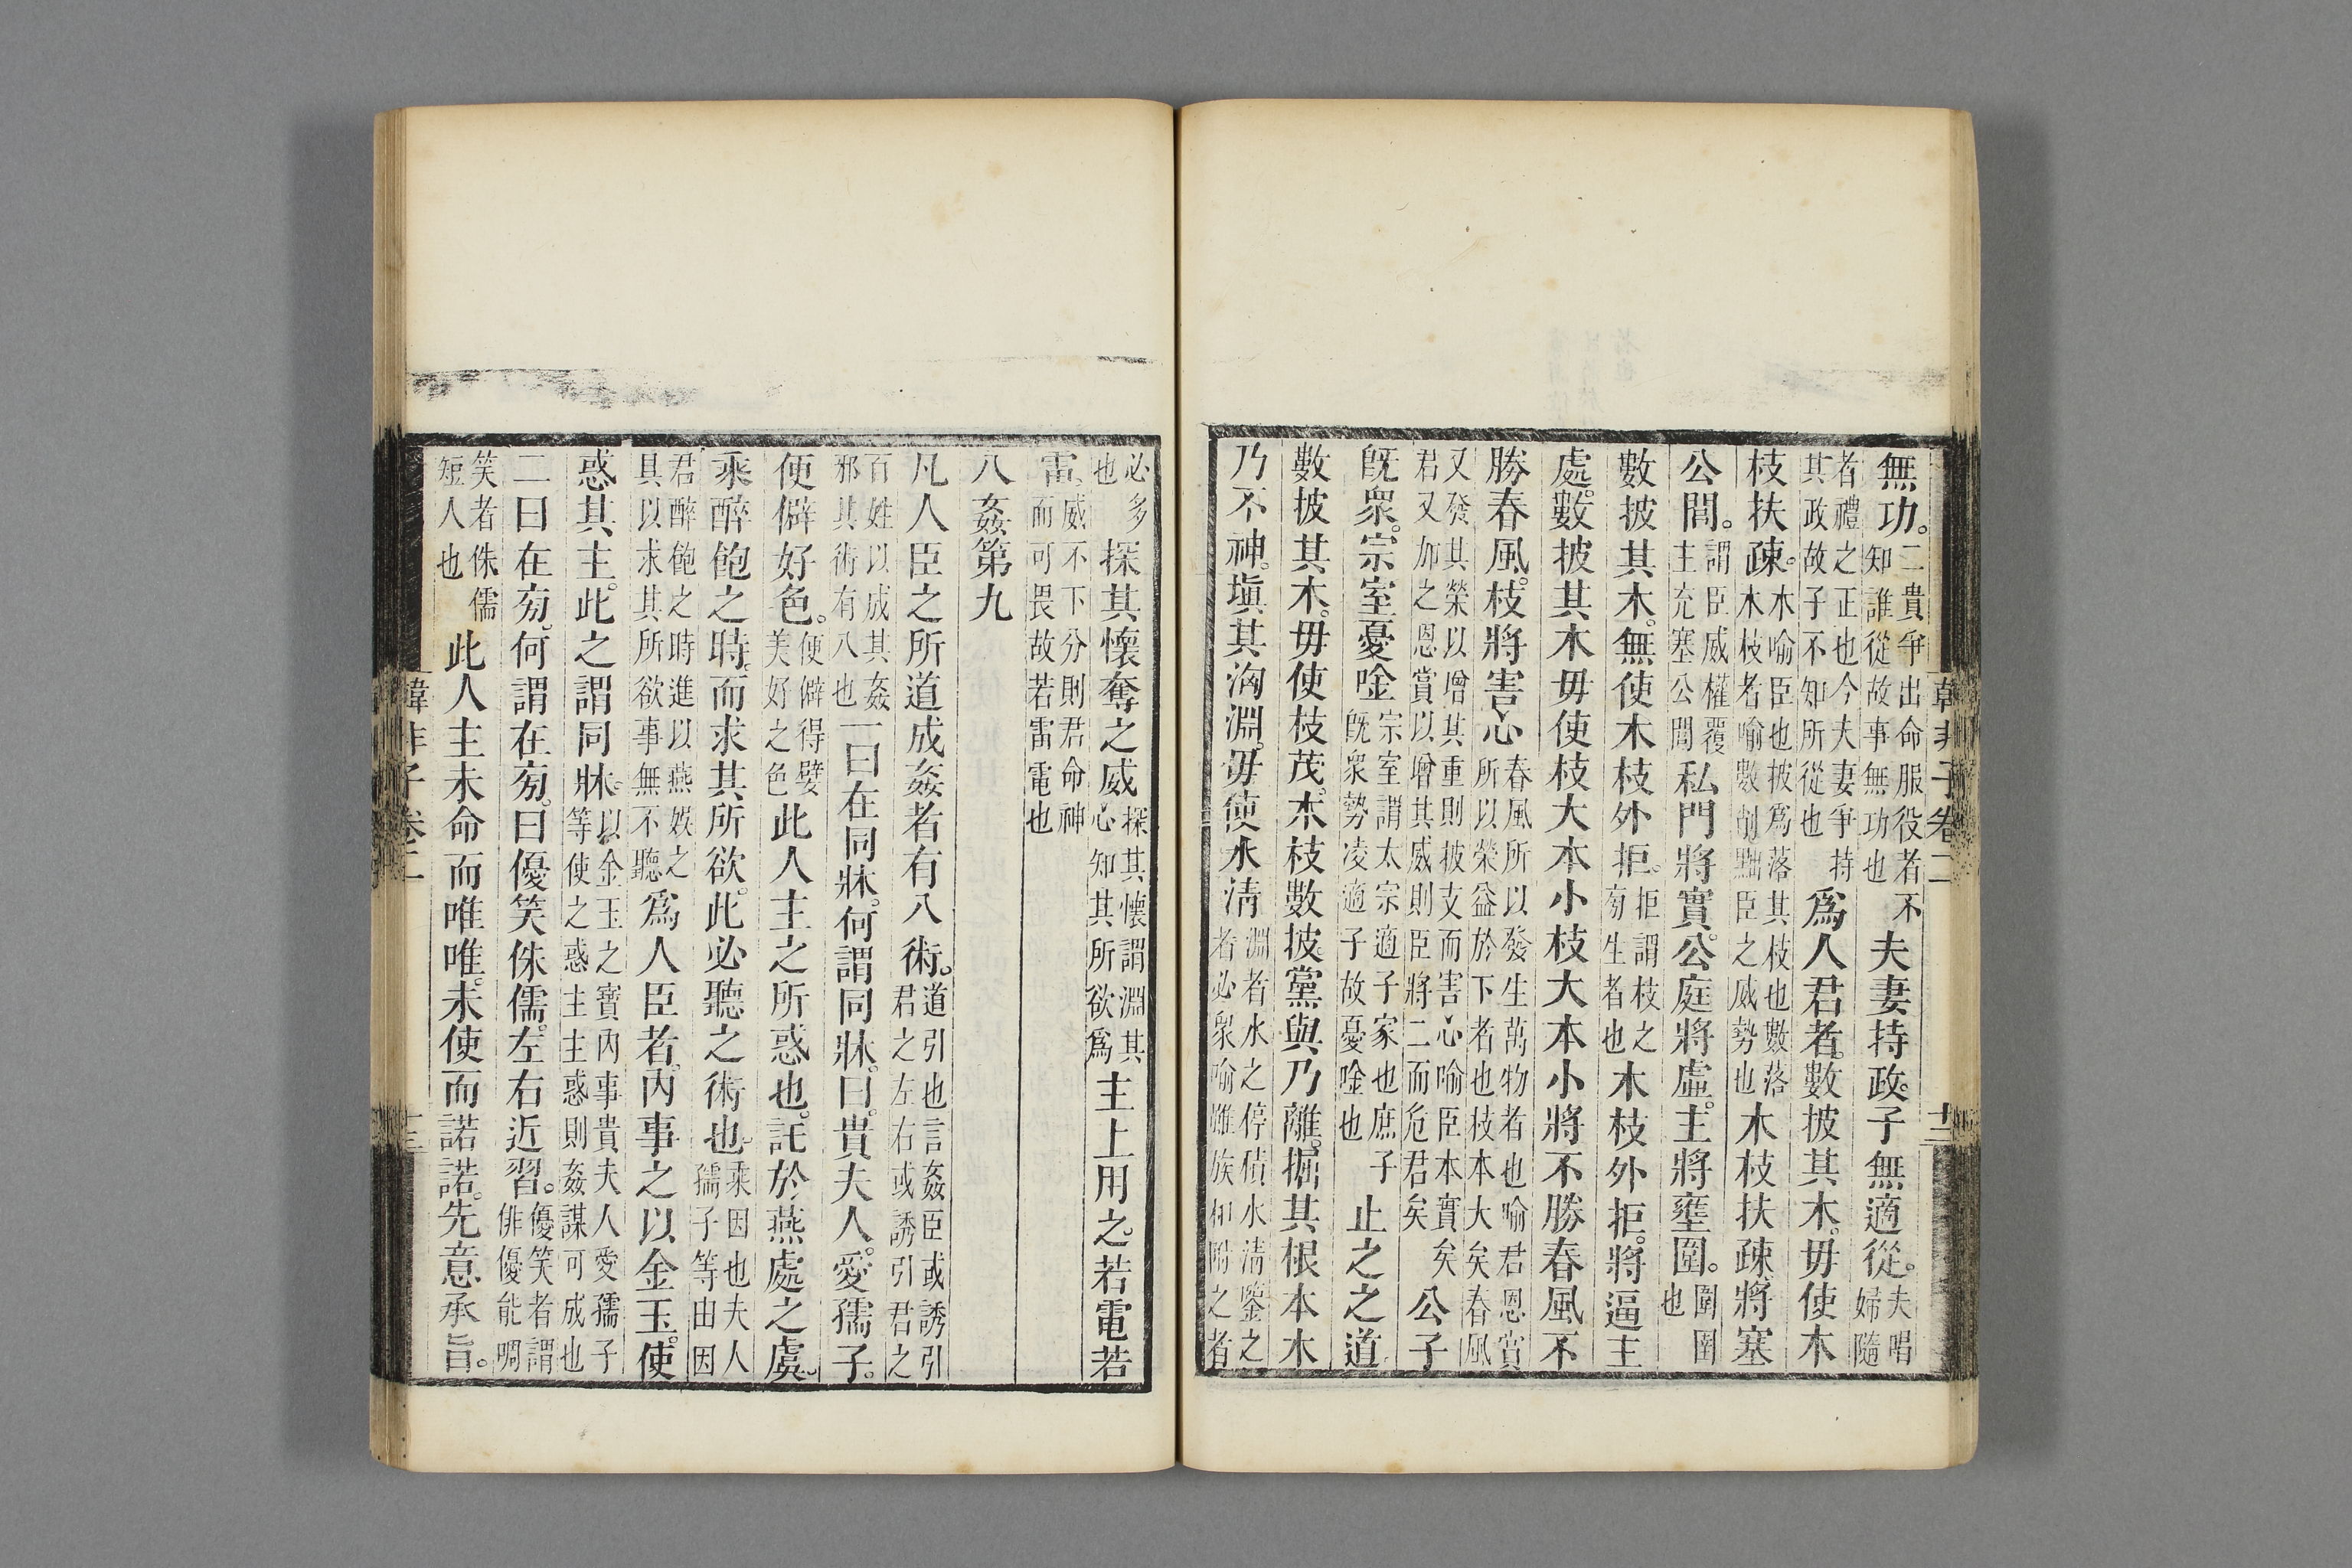 無功。二貴爭出命服役者不知誰從故事無功也夫妻持政。子無適從。夫唱婦隨
者禮之正也今夫妻爭持其政故子不知所從也爲人君者。數披其木。毋使木
枝扶疎。木喻臣也披爲落其枝也數落木枝者喻數削黜臣之威勢也木枝扶疎。將塞
公閭。謂臣威權覆主充塞公閭私門將實。公庭將虛。主將壅圍。圍圉也
數披其木。無使木枝外拒。拒謂枝之旁生者也木枝外拒。將逼主
處。數披其木毋使枝大本小枝大本小將不勝春風不
勝春風。枝將害心春風所以發生萬物者也喻君恩賞所以榮益於下者也枝本大矣春風
又發其榮以增其重則披支而害心喻臣本實矣君又加之恩賞以增其威則臣將二而危君矣公子
旣衆。宗室憂唫宗室謂太宗適子家也庶子旣衆勢凌適子故憂唫也止之之道
數披其木。毋使枝茂。木枝數披。黨與乃離。掘其根本木
乃不神。塡其洶淵。毋使水淸淵者水之停積水淸鑒之者必衆喻雖族和附之者
韓非子卷二
十二
必多也探其懷奪之威探其懷謂淵其心知其所欲爲主上用之。若電若
雷。威不下分則君命神而可畏故若雷電也
八姦第九
凡人臣之所道成姦者有八術。道引也言姦臣或誘引君之左右或誘引君之
百姓以成其姦邪其術有八也一曰在同牀。何謂同牀。曰。貴夫人。愛孺子。
便僻好色。便僻得嬖美好之色此人主之所惑也。託於燕處之虞。
乘醉飽之時。而求其所欲。此必聽之術也。乘因也夫人孺子等由因
君醉飽之時進以燕娛之具以求其所欲事無不聽爲人臣者。內事之以金玉。使
惑其主。此之謂同牀。以金玉之寶內事貴夫人愛孺子等使之惑主主惑則姦謀可成也
二曰在旁。何謂在旁。曰優笑侏儒。左右近習。優笑者謂俳優能啁
笑者侏儒短人也此人主未命而唯唯。未使而諾諾。先意承旨。
韓非子卷二
十三